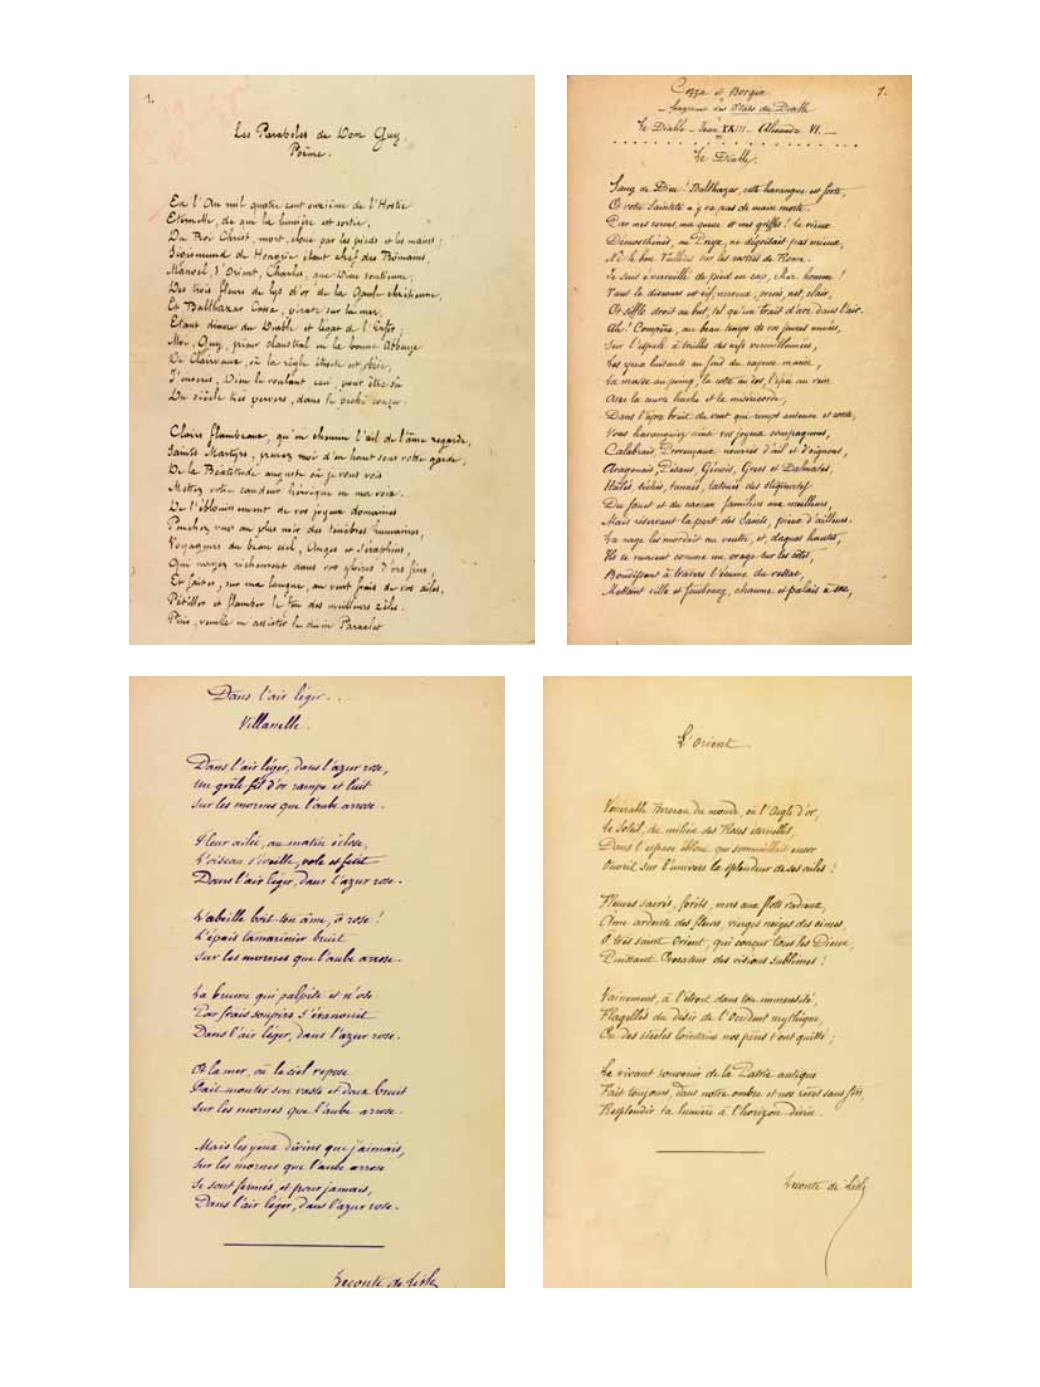 1.
Les Paraboles de Dom Guy.
Poëme.
En l'An mil quatre cent onzième de l'Hostie
Eternelle, de qui la lumière est sortie,
Du Roi Christ, mort, cloué par les pieds et les mains ;
Sigismund de Hongrie étant chef des Romains,
Manoel, d'Orient, Charles, que Dieu soutienne,
Des trois fleurs de lys d'or de la Gaule chrétienne,
Et Balthazar Cossa, pirate sur la mer,
Etant diacre du Diable et légat de l'Enfer ;
Moi, Guy, prieur claustral en la bonne Abbaye
De Clairvaux, où la règle étroite est obéie,
J'écris, Dieu le voulant, ceci, pour être su
Du siècle très pervers, dans le péché conçu.
Clairs flambeaux, qu'en chemin l'œil de l'âme regarde,
Saints Martyrs, prenez moi d'en haut sous votre garde ;
De la Béatitude auguste où je vous vois
Mettez votre candeur héroïque en ma voix.
De l'éblouissement de vos joyeux domaines
Penchez vous au plus noir des ténèbres humaines,
Voyageurs du beau ciel, Anges et Séraphins,
Qui nagez richement dans vos gloires d'ors fins,
Et faites, sur ma langue, au vent frais de vos ailes,
Pétiller et flamber le feu des meilleurs zèles.
Puis, veuille m'assister le divin Paraclet
Cozza et Borgia
1.
fragment des Etats du Diable
Le Diable – Jean XXIII – Alexandre VI.
Le Diable.
Sang de Dieu ! Balthazar, cette harangue est forte,
Et votre Sainteté n'y va pas de main morte.
Par mes cornes, ma queue et mes griffes ! le vieux
Démosthénès, au Pnyx, ne dégoisait pas mieux,
Ni le bon Tullius sur les rostres de Rome.
Je suis émerveillé de pied en cap, cher homme !
Tant le discours est vif, nerveux, précis, net, clair,
Et siffle droit au but, tel qu'un trait d'arc dans l'air.
Ah ! Compère, au beau temps de vos jeunes années,
Sur l'espale à treilles des nefs vermillonnées,
Les yeux luisants au fond du capuce marin,
La masse au poing, la cotte au dos, l'épée au rein
Avec la courte hache et la miséricorde,
Dans l'âpre bruit du vent qui rompt antenne et corde,
Vous haranguiez ainsi vos joyeux compagnons,
Calabrais, Provençaux nourris d'ail et d'oignons,
Aragonais, Pisans, Génois, Grecs et Dalmates,
Hâlés, lichés, tannés, tatoués des stigmates
Du fouet et du carcan familiers aux meilleurs,
Mais réservant la part des Saints, pieux d'ailleurs.
La rage les mordait au ventre, et, dagues hautes,
Ils se ruaient comme un orage sur les côtes,
Bondissant à travers l'écume du ressac,
Mettant ville et faubourg, chaume et palais à sac,
Dans l'air léger...
Villanelle.
Dans l'air léger, dans l'azur rose,
Un grêle fil d'or rampe et luit
Sur les mornes que l'aube arrose.
Fleur ailée, au matin éclose,
L'oiseau s'éveille, vole et fuit
Dans l'air léger, dans l'azur rose.
L'abeille boit ton âme, ô rose !
L'épais tamarinier bruit
Sur les mornes que l'aube arrose.
La brume qui palpite et n'ose
Par frais soupirs s'évanouit
Dans l'air léger, dans l'azur rose.
Et la mer, où le ciel repose
Fait monter son vaste et doux bruit
Sur les mornes que l'aube arrose.
Mais les yeux divins que j'aimais,
Sur les mornes que l'aube arrose
Se sont fermés, et pour jamais,
Dans l'air léger, dans l'azur rose.
Leconte de Lisle
L'Orient.
Vénérable Berceau du monde, où l'Aigle d'or,
Le Soleil, du milieu des Roses éternelles,
Dans l'espace ébloui qui sommeillait encor
Ouvrit sur l'univers la splendeur de ses ailes !
Fleuves sacrés, forêts, mers aux flots radieux,
Âme ardente des fleurs, vierges neiges des cimes,
Ô très saint Orient, qui conçus tous les Dieux,
Puissant Évocateur des visions sublimes !
Vainement, à l'étroit dans ton immensité,
Flagellés du désir de l'Occident mythique,
En des siècles lointains nos pères t'ont quitté ;
Le vivant souvenir de la Patrie antique
Fait toujours, dans notre ombre et nos rêves sans fin,
Resplendir ta lumière à l'horizon divin.
Leconte de Lisle